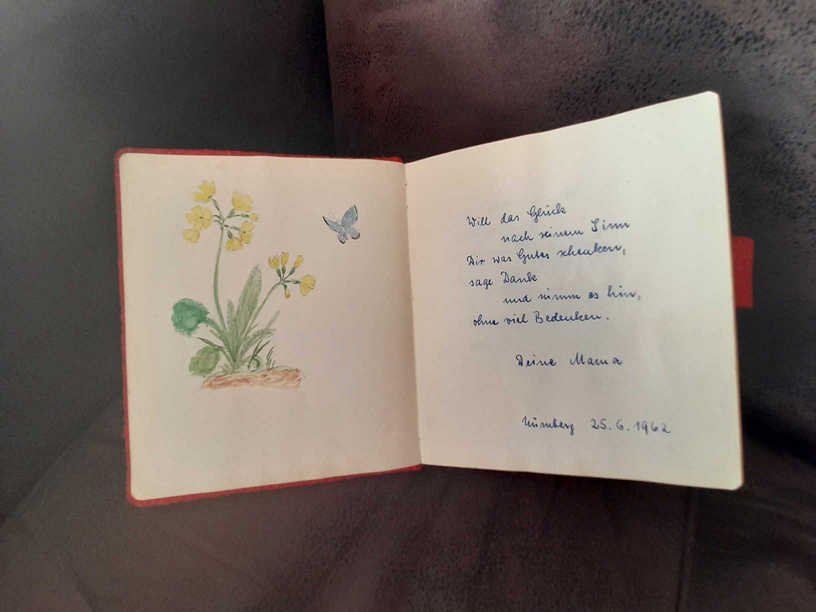 Will das Glück
nach seinem Sinn
Dir was Gutes schenken,
sage Dank
und nimm es hin,
ohne viel Bedenken.
Deine Mama
Nürnberg 25.6.1962